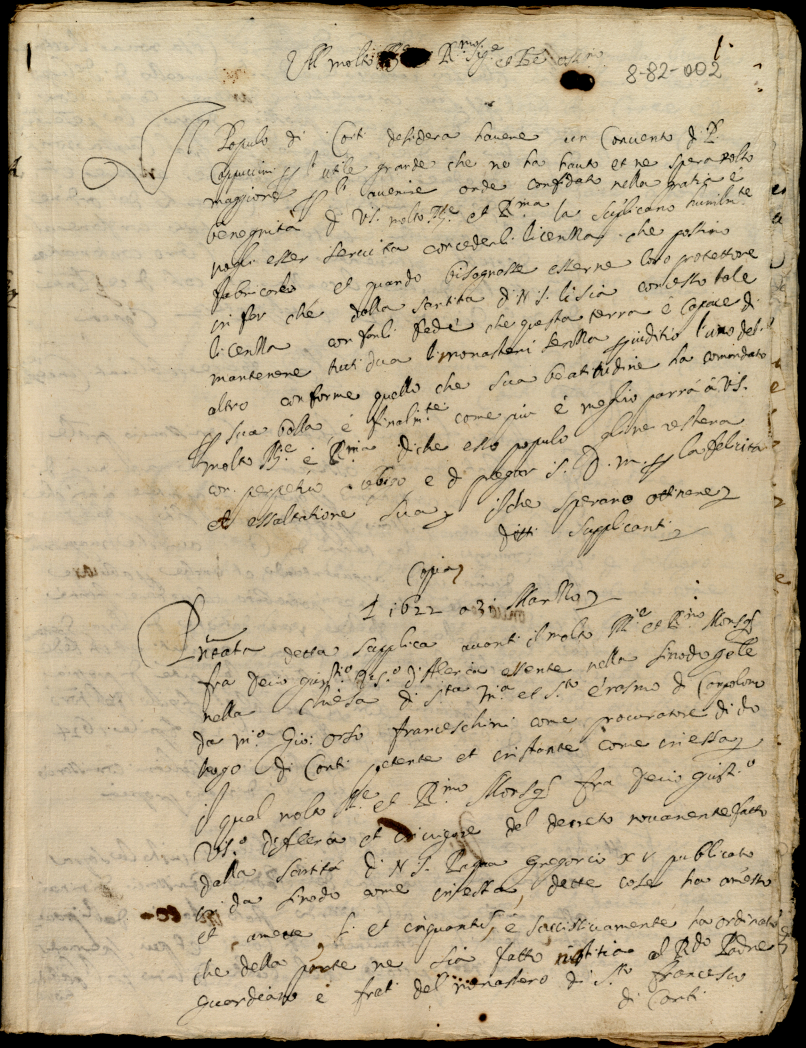 All molto R.mo Sig.e et
1.
8-82-002
Il Populo di Corti desidera havere un Convento di P.
Cappuccini utile grande che ne ha hauto et ne spera molto
maggiore avenire onde confidato nella gratia é
benegnità di V.S. molto Ill.e et R.ma la suplicano humilm.te
voler esser servita concederli licenza che possino
fabricarlo et quando bisognasse esserne loro protettore
in far che dalla Santita di N. S. li sia concesso tale
licenza con farli fede che questa terra é capace di
mantenere tutti dua li monasteri senza giuditio l'uno del
altro conforme quello che sua beatitudine ha comandato
sua bolla, é finalm.te come più é meglio parrà à V.S.
molto Ill.e é R.ma di che esso populo
con perpetuo e di pregar S. D. M. la felicità
et essaltatione sua il che sperano ottenere
detti Supplicanti
Copia
1622 a 31 Marzo
P.ntata detta Supplica avanti il molto Ill.e et R.mo Mons.
fra Decio Giust.o Vis.o d'Aleria essente nella Sinodo
nella Chiesa di S.ta M.a et S.to Erasmo di
da M.o Gio: Orso Franceschini come procuratore di do
luogo di Corti petente et instante come in essa
il qual molto Ill.e et R.mo Mons. fra Decio Giust.o
Vis.o d'Aleria et in vigore del decreto novamente fatto
dalla Santità di N S. Papa Gregorio XV. publicato
da Sinodo come in essa, dette cose ha amesso
et amette si et et successivamente ha ordinato
che della parte ne sia fatto notitia al R.do Padre
Guardiano e frati del monastero di S.to Francesco
di Corti